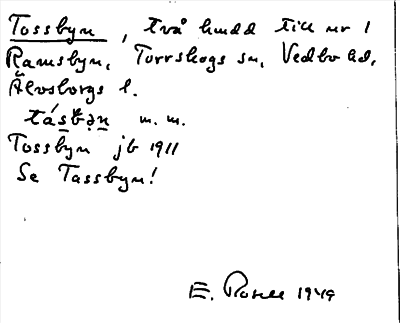 Tossbyn, två hmdd till nr 1
Ramsbyn, Torrskogs sn, Vedbo hd,
Älvsborgs l.
tásbən m.m.
Tossbyn jb 1911
Se Tassbyn!
E. Rosell 1949